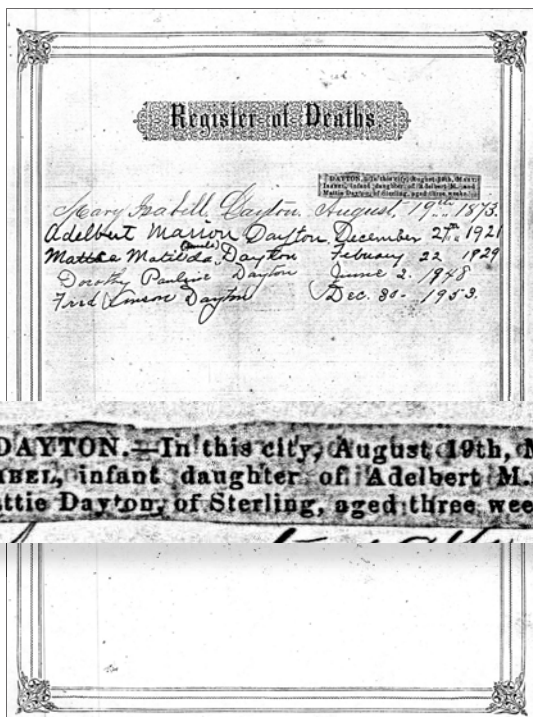 Register of Deaths
DAYTON.—In this city, August 19th, MARY
ISABEL, infant daughter of Adelbert M. and
Mattie Dayton, of Sterling, aged three weeks.
Mary Isabell Dayton. August, 19th 1873.
Adelbert Marion Dayton, December 27th 1921
Mattie Matilda, Dayton Febuary 22 1929
Dorothy Pauline Dayton June 2. 1948
Fred Dayton Dec. 30- 1953.
DAYTON.—In this city, August 19th, M
IBEL, infant daughter of Adelbert M.
attie Dayton, of Sterling, aged three wee